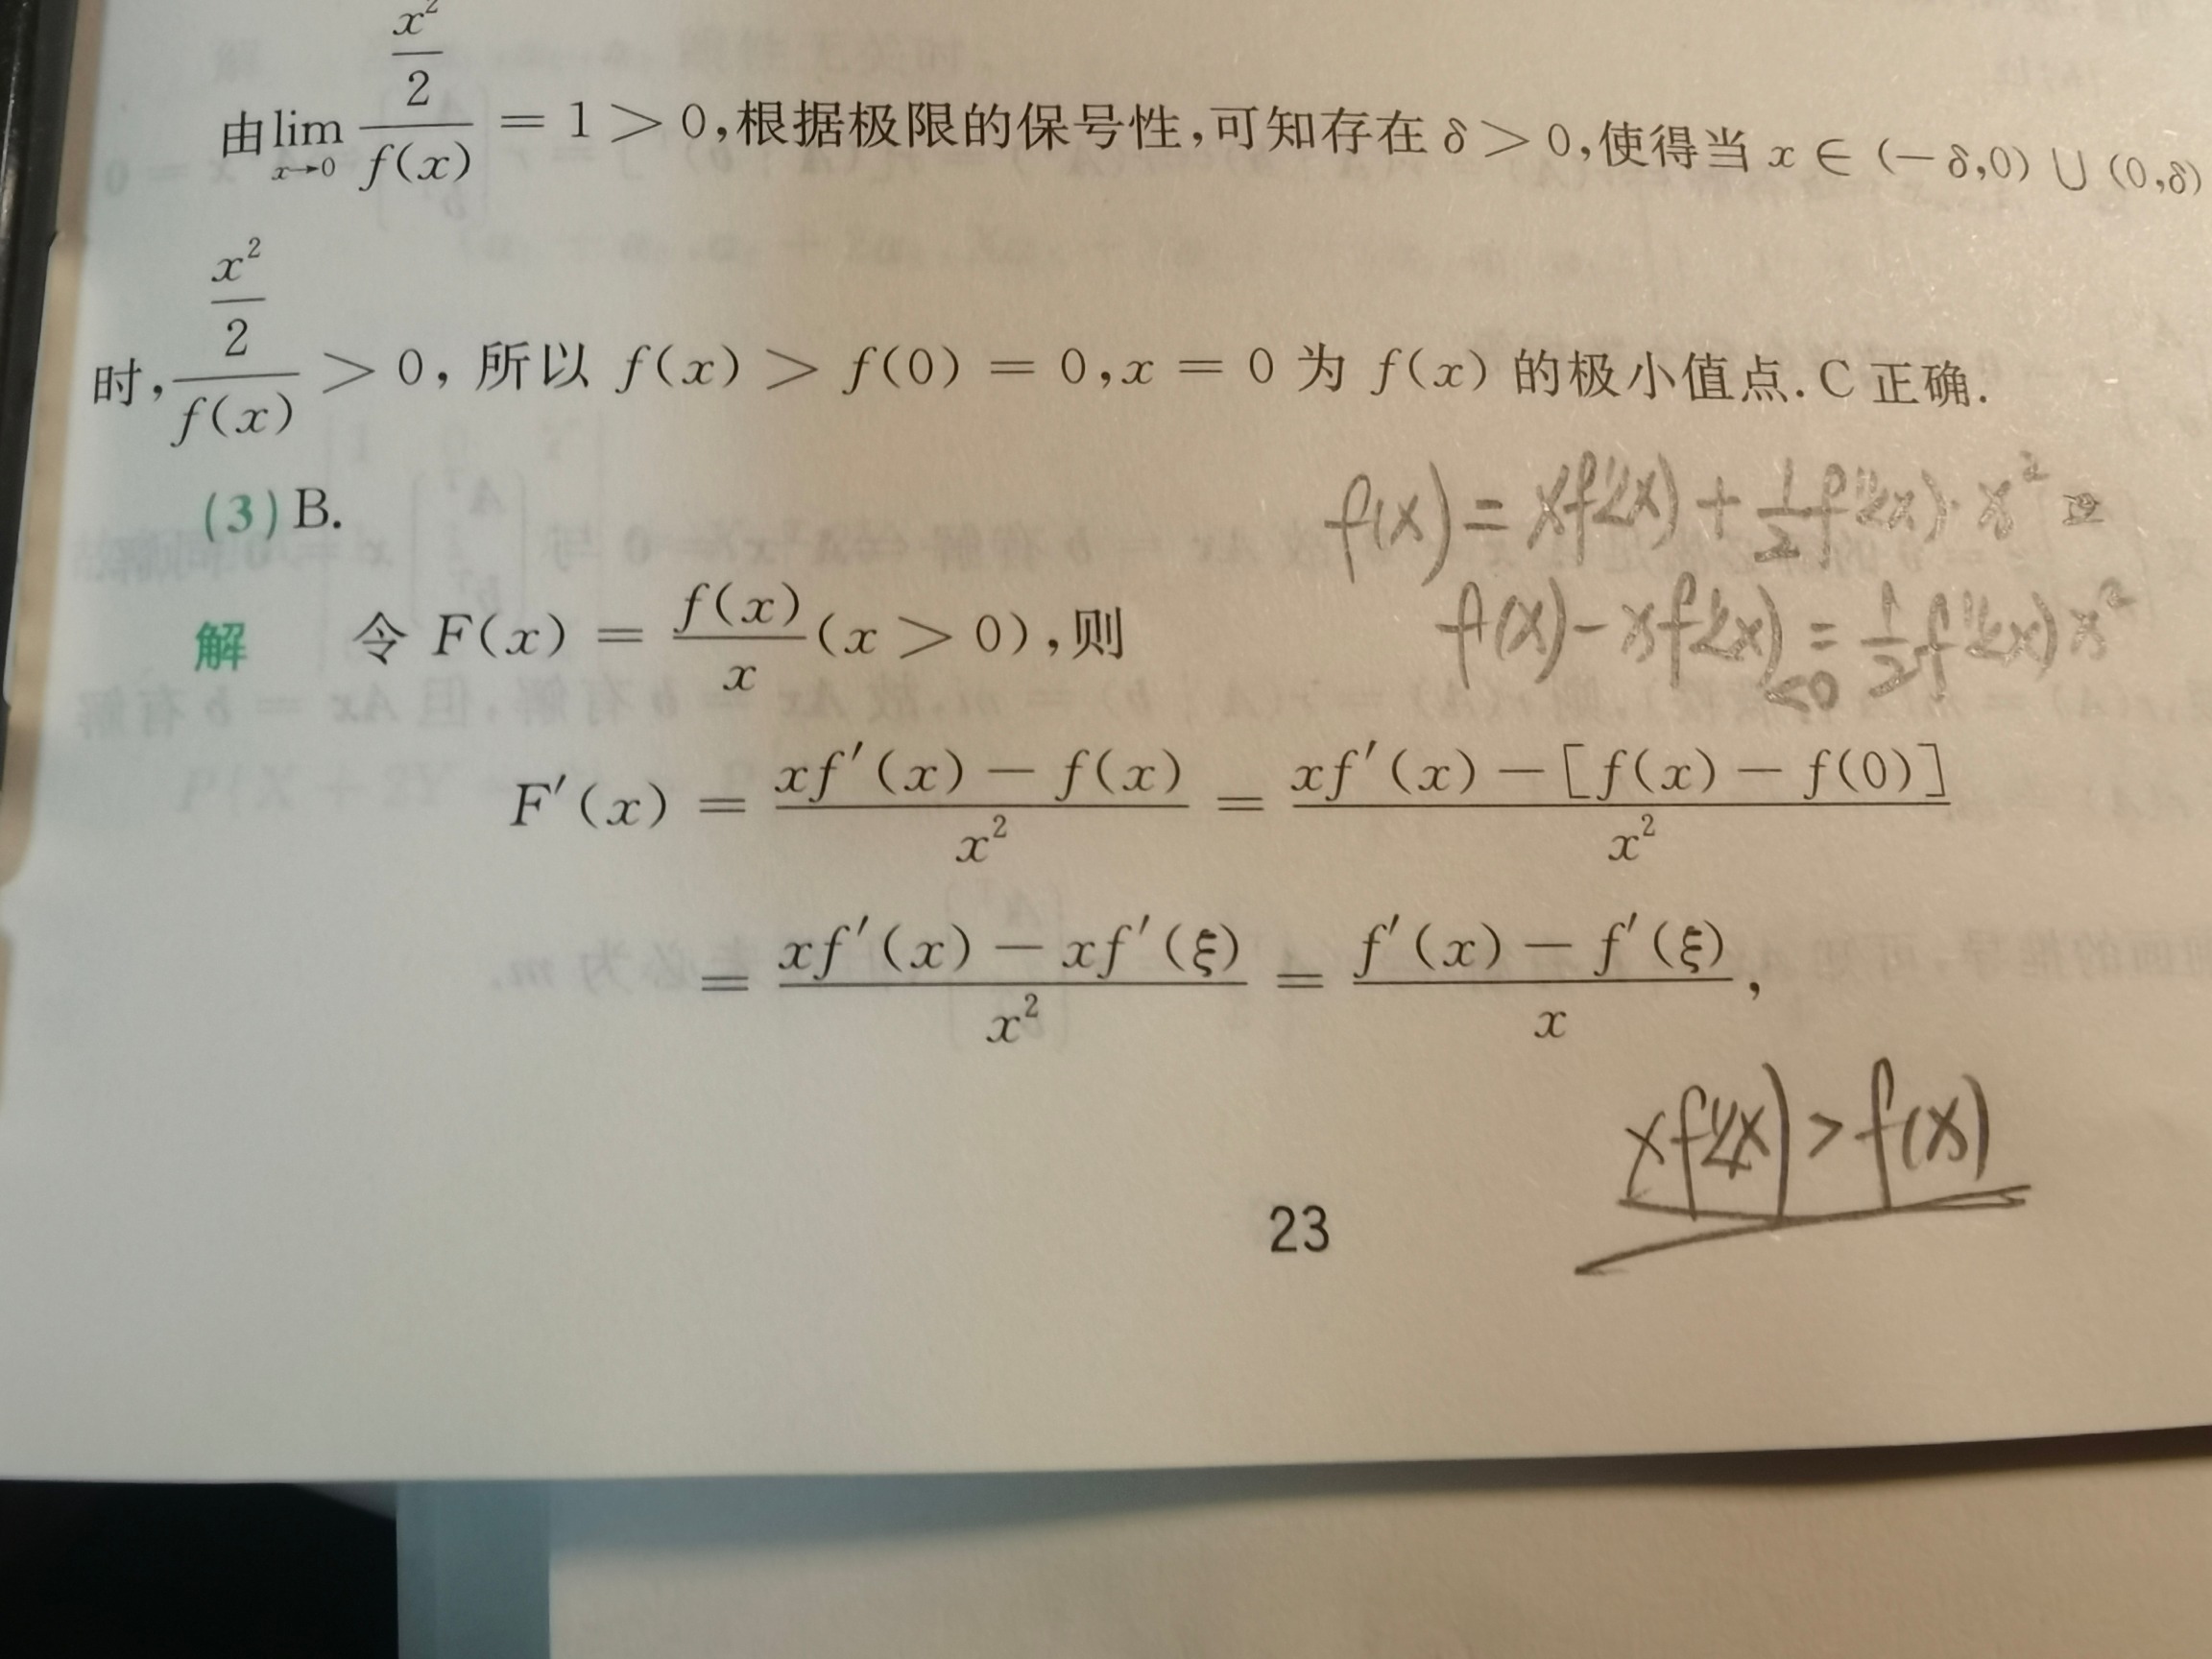 由 lim_{x→0} (x²/2)/f(x) = 1 > 0,根据极限的保号性,可知存在 δ > 0,使得当 x ∈ (−δ,0) ∪ (0,δ)
时, (x²/2)/f(x) > 0, 所以 f(x) > f(0) = 0,x = 0 为 f(x) 的极小值点. C 正确.
(3) B.
f(x) = xf'(x) + 1/2 f''(x) · x²
解 令 F(x) = f(x)/x (x > 0),则
f(x) − xf'(x) = 1/2 f''(x) x²
<0
F′(x) = (xf′(x) − f(x))/x² = (xf′(x) − [f(x) − f(0)])/x²
= (xf′(x) − xf′(ξ))/x² = (f′(x) − f′(ξ))/x,
xf'(x) > f(x)
23